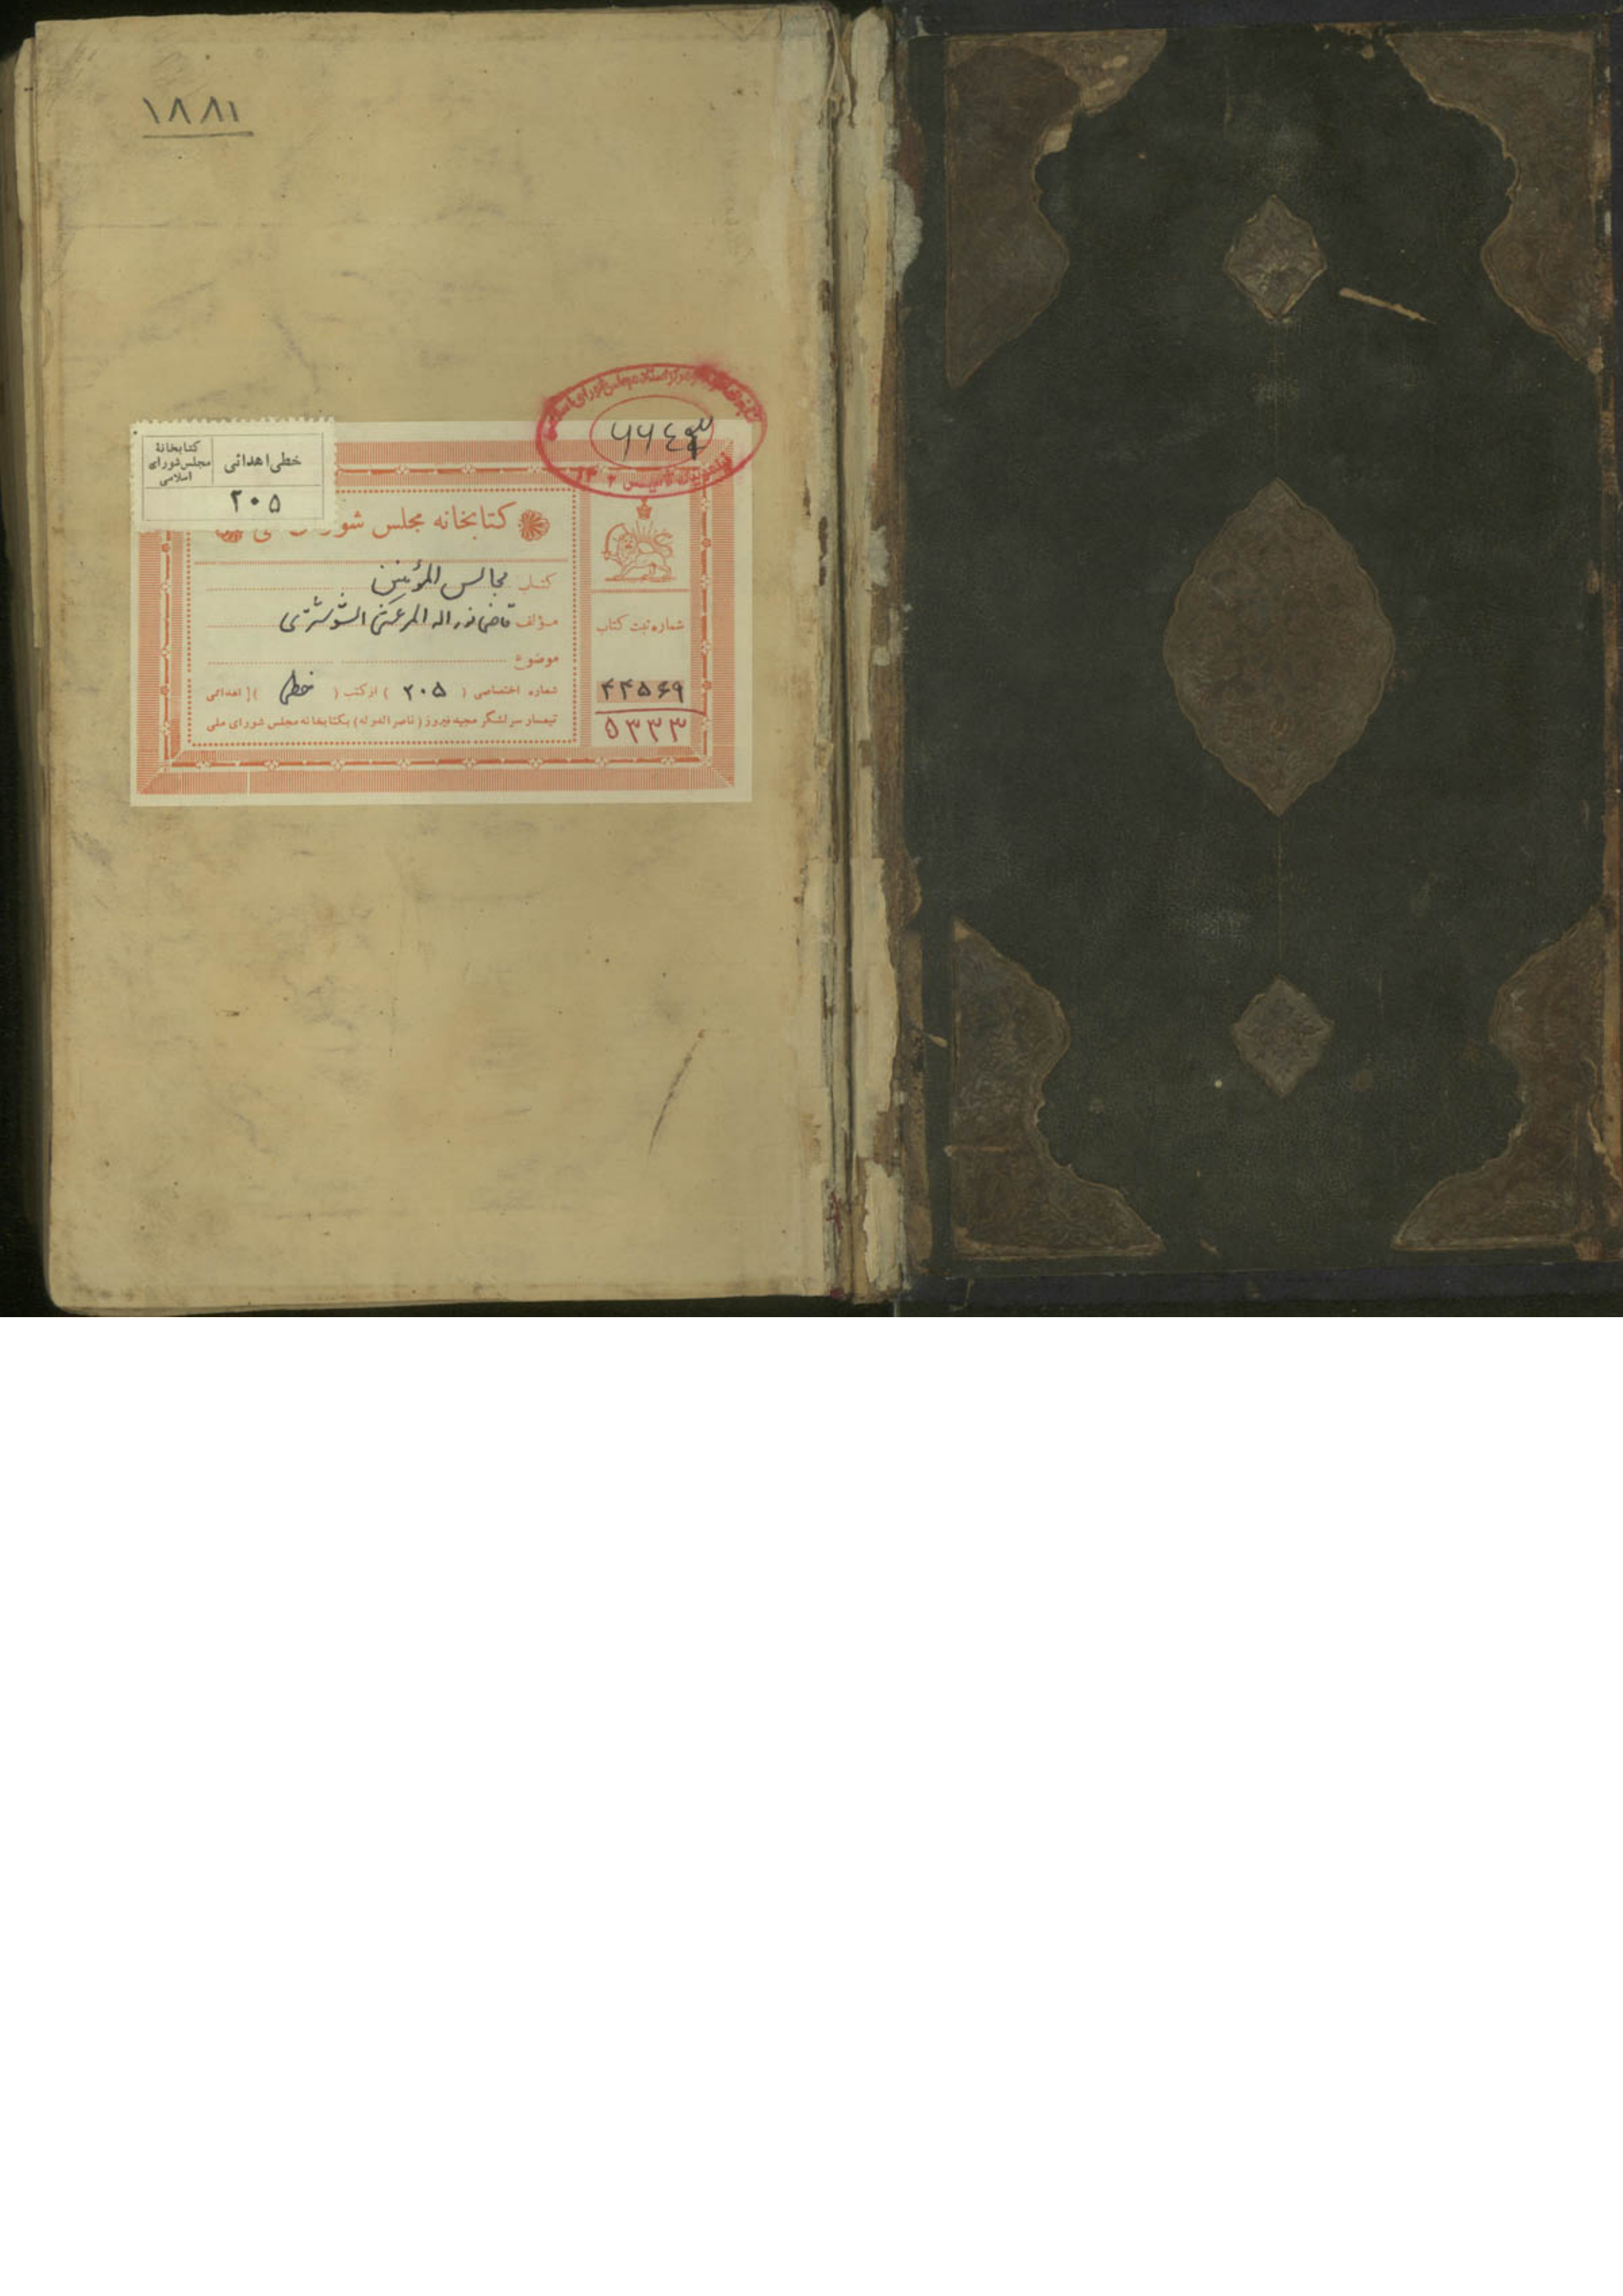 ۱۸۸۱
کتابخانه مجلس شورای اسلامی
۶۶۴۳
خطی اهدائی
کتابخانهٔ مجلس شورای اسلامی
۲۰۵
کتابخانه مجلس
کتاب مجالس المؤمنین
مؤلف قاضی نور اله المرعشی الشوشتری
موضوع
شماره اختصاصی ( ۲۰۵ ) از کتب ( خطی ) اهدائی
تیمسار سرلشگر مجید فیروز (ناصرالدوله) بکتابخانه مجلس شورای ملی
شماره ثبت کتاب
۴۴۵۶۹
۵۳۳۳